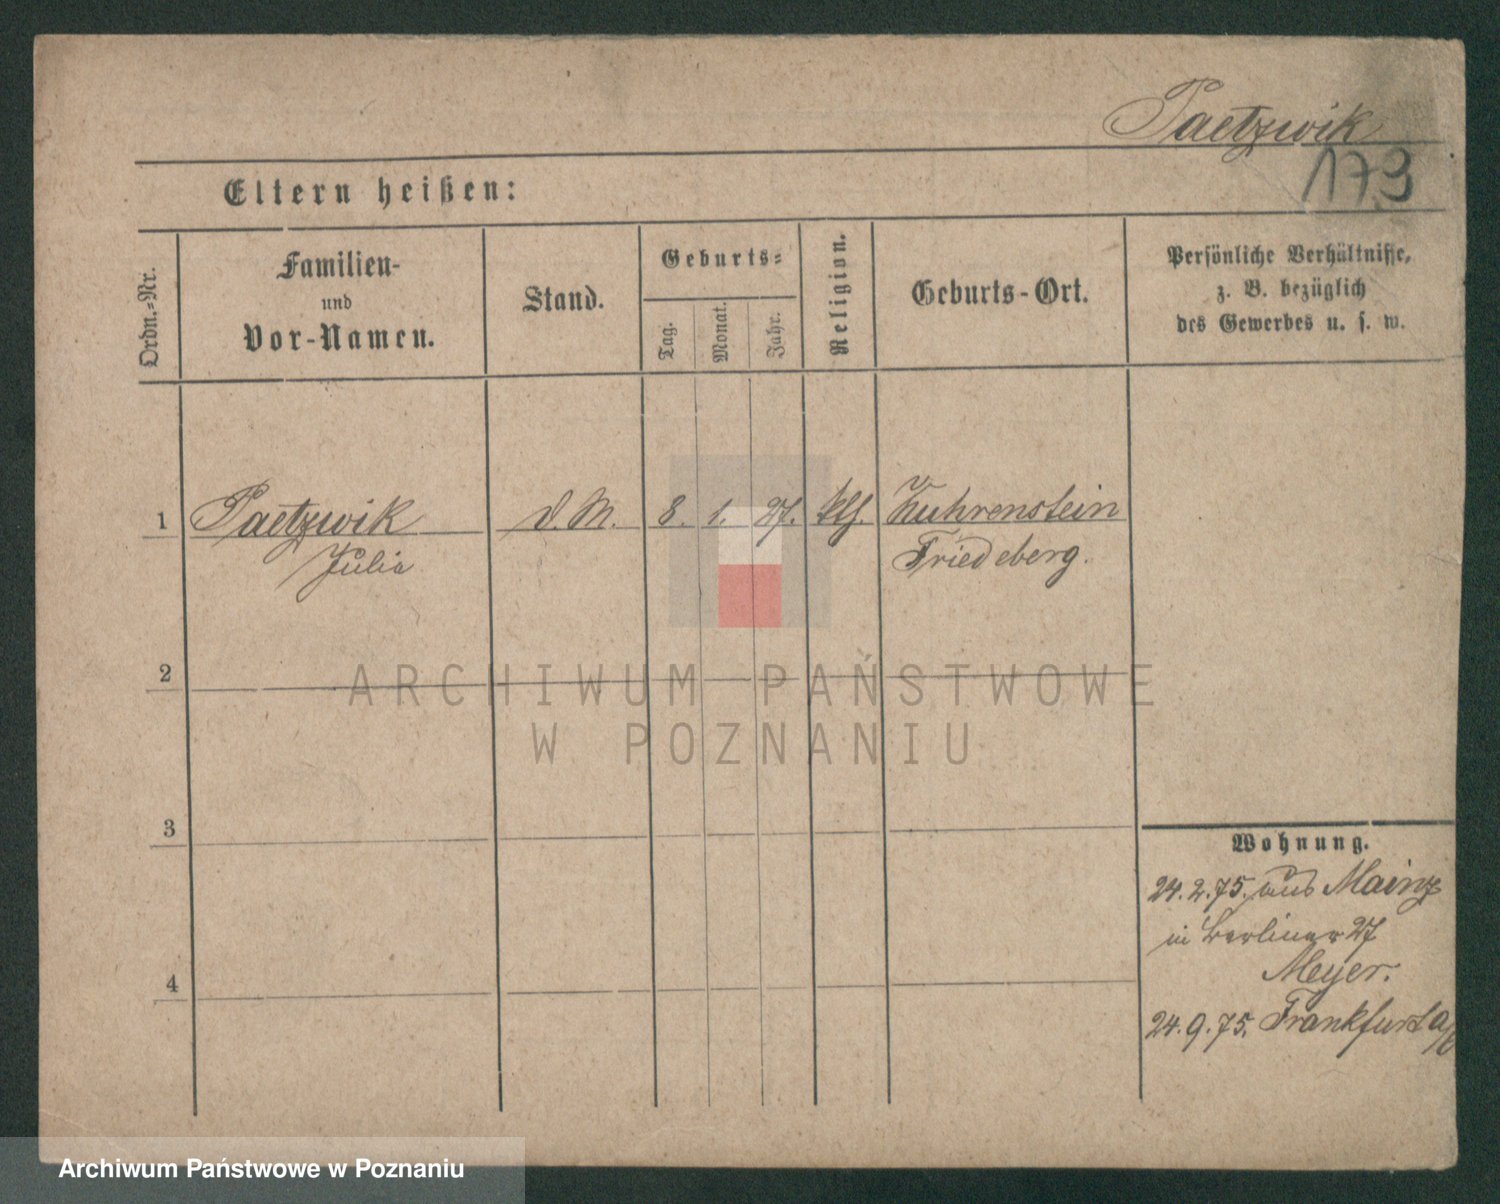 Paetzwik
173
Eltern heißen:
Ordn.-Nr.
Familien-
und
Vor-Namen.
Stand.
Geburts-
Tag.
Monat.
Jahr.
Religion.
Geburts-Ort.
Persönliche Verhältnisse,
z. B. bezüglich
des Gewerbes u. s. w.
1 Paetzwik d. M. 8. 1. 27. kth. Zuhrenstein
Julia Friedeberg.
2
3
4
ARCHIWUM PAŃSTWOWE
W POZNANIU
Wohnung.
24.2.75. aus Mainz
in Berliner 27
Meyer.
24.9.75. Frankfurt a/
Archiwum Państwowe w Poznaniu